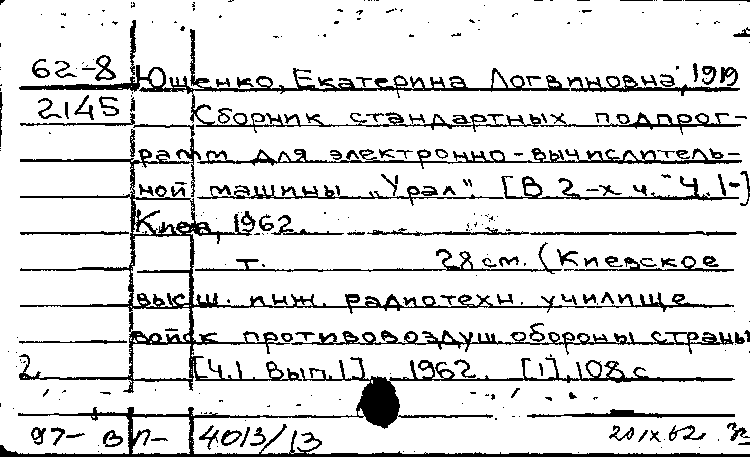 62-8 Ющенко, Екатерина Логвиновна, 1919
2145 Сборник стандартных подпрог-
рамм для электронно-вычислитель-
ной машины „Урал". [В 2-х ч. Ч. 1-]
Киев, 1962.
т. 28 см. (Киевское
высш. инж. радиотехн. училище
войск противовоздуш. обороны страны
2. [Ч.1. Вып.1]. 1962. [1], 108 с
97- В П- 4013/13 20 IX 62.